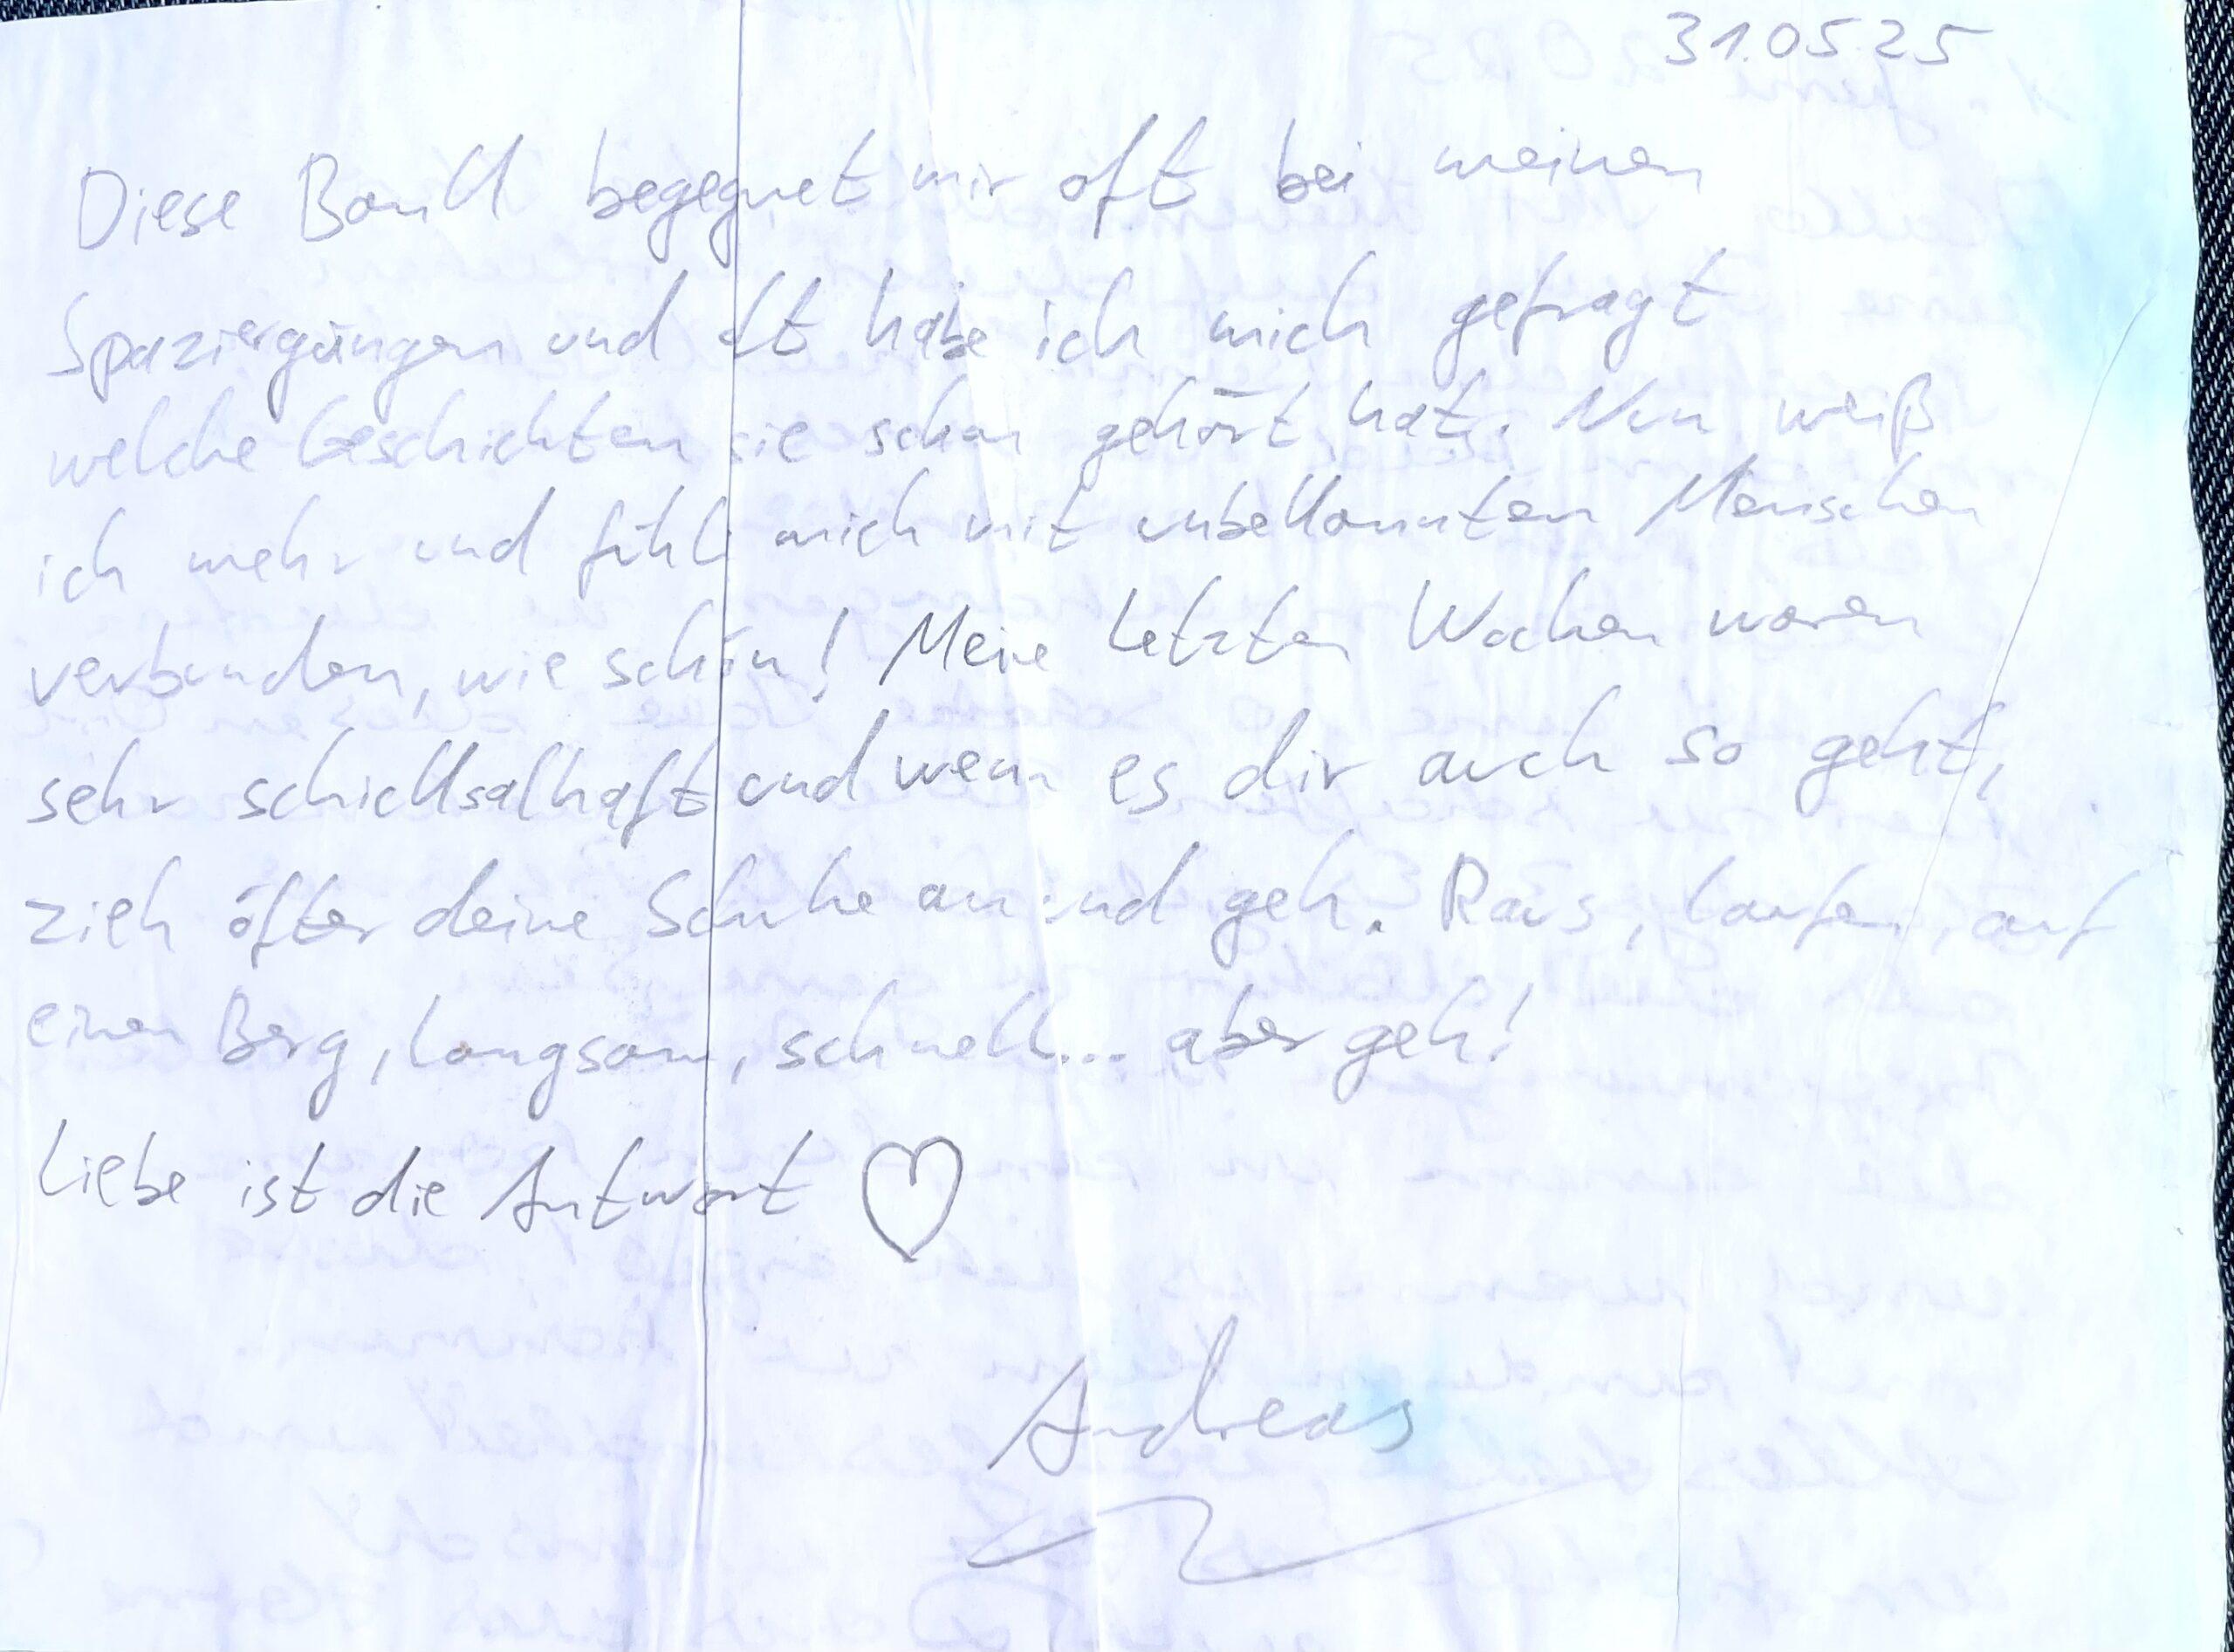 31.05.25
Diese Bank begegnet mir oft bei meinen
Spaziergängen und oft habe ich mich gefragt
welche Geschichten sie schon gehört hat. Nun weiß
ich mehr und fühle mich mit unbekannten Menschen
verbunden, wie schön! Meine letzten Wochen waren
sehr schicksalhaft und wenn es dir auch so geht,
zieh öfter deine Schuhe an und geh. Raus, laufen, auf
einen Berg, langsam, schnell... aber geh!
Liebe ist die Antwort ♡
Andreas